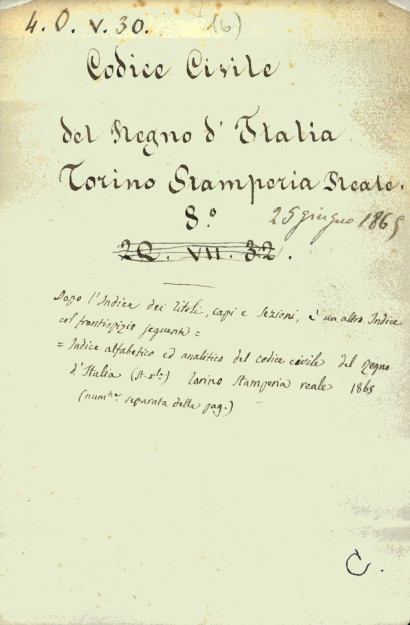 4. O. V. 30. (6)
Codice Civile
del Regno d' Italia
Torino Stamperia Reale.
8.º
25 giugno 1865
2Q. VII. 32.
Dopo l'Indice dei Titoli, capi e Sezioni, è un altro Indice
col frontispizio seguente =
= Indice alfabetico ed analitico del codice civile del Regno
d'Italia Torino Stamperia reale 1865
(num.ne separata delle pag.)
C.